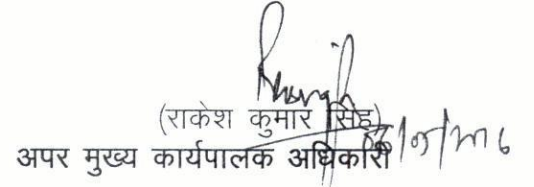 (राकेश कुमार सिंह)
अपर मुख्य कार्यपालक अधिकारी